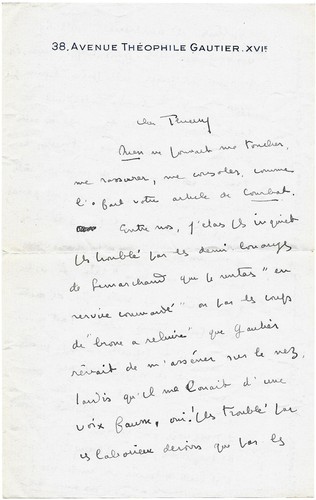 38, AVENUE THÉOPHILE GAUTIER. XVIᵉ
cher Thierry
Rien ne pouvait me toucher,
me rassurer, me consoler, comme
l'a fait votre article de Combat.
Entre nos, j'étais plus inquiet
plus troublé par les demi louanges
de Lemarchand que je sentais "en
service commandé" ou par les coups
de "brosse à reluire" que Gautier
rêvait de m'asséner sur le nez,
tandis qu'il me louait d'une
voix fausse, oui! plus troublé par
ces laborieux devoirs que par les